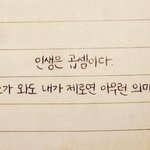 인생은 곱셈이다.
가 와도 내가 제로면 아무런 의미